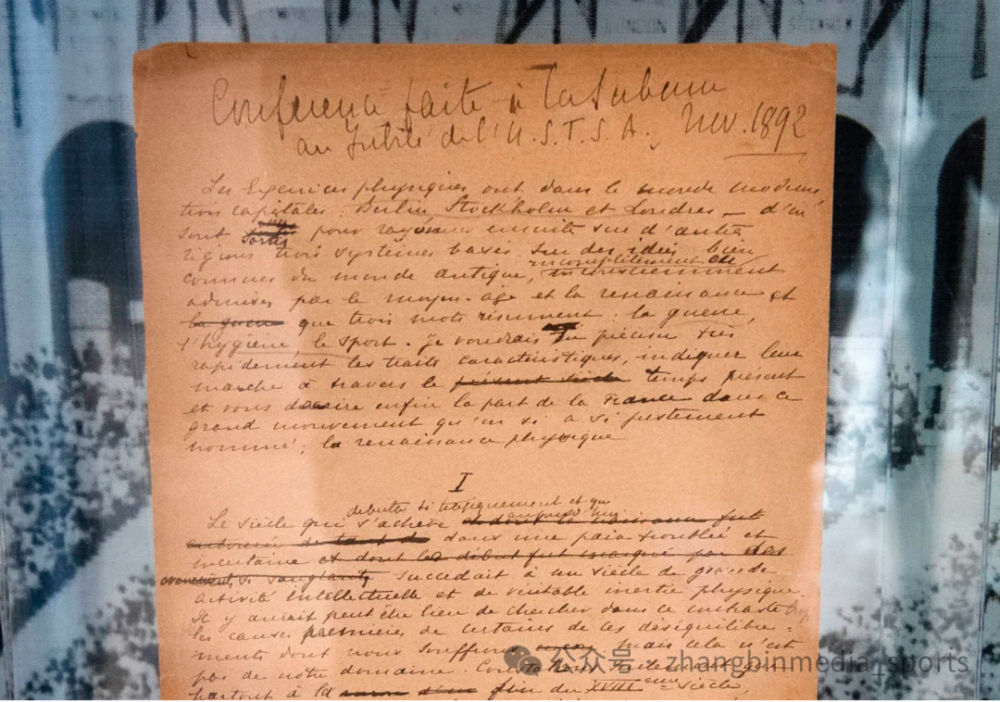 Conférence faite à la Sorbonne
au Jubilé de l'U.S.F.S.A. Nov. 1892
Les Exercices physiques ont dans le monde moderne
trois capitales : Berlin, Stockholm et Londres — d'où
sont sortis pour rayonner ensuite sur d'autres
régions trois systèmes basés sur des idées bien
incomplètement ou
connues du monde antique, inconsciemment
admises par le moyen-âge et la renaissance et
la guerre que trois mots résument : la guerre,
l'hygiène, le sport. Je voudrais en préciser très
rapidement les traits caractéristiques, indiquer leur
marche à travers le présent siècle temps présent
et vous décrire enfin la part de la France dans ce
grand mouvement qu'on a si justement
nommé : la renaissance physique
I
débuter si tragiquement et qui
Le siècle qui s'achève et dont la naissance fut
dans une paix troublée et
incertaine et dont le début fut marqué par des
si sanglants succédait à un siècle de grande
activité intellectuelle et de véritable inertie physique.
Il y aurait peut être lieu de chercher dans ce contraste
les causes premières de certains de ces désequilibre-
ments dont nous souffrons mais cela n'est
pas de notre domaine.
partout à la fin du XVIIIème siècle,
公众号 · zhangbinmedia_sports